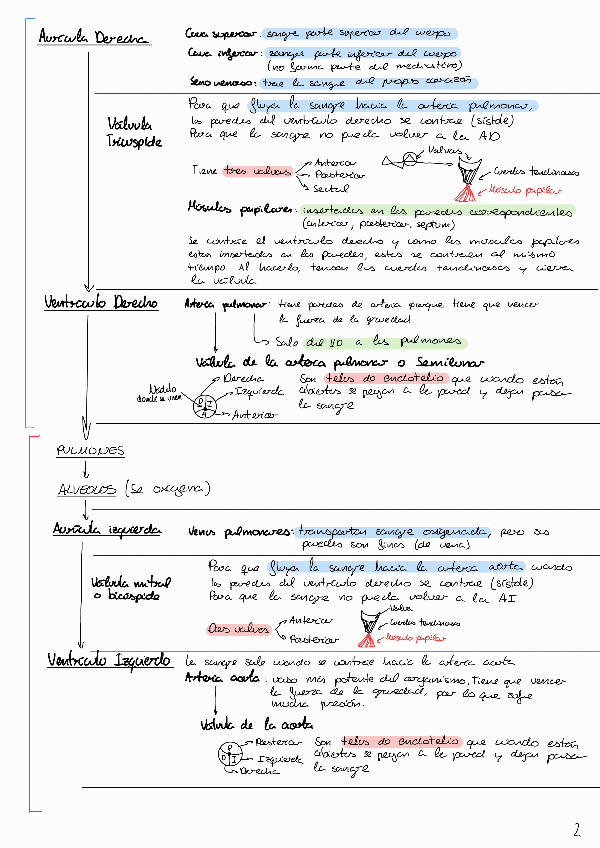 Aurícula Derecha
Cava superior: sangre parte superior del cuerpo
Cava inferior: sangre parte inferior del cuerpo
(no forma parte del mediastino)
Seno venoso: trae la sangre del propio corazón
Válvula
Tricúspide
Para que fluya la sangre hacia la arteria pulmonar,
las paredes del ventrículo derecho se contrae (sístole)
Para que la sangre no pueda volver a la AD
Tiene tres valvas
Anterior
Posterior
Septal
Valvas
Cuerdas tendinosas
Músculo papilar
Músculos papilares: insertados en las paredes correspondientes
(anterior, posterior, septum)
Se contrae el ventrículo derecho y como los músculos papilares
están insertados en las paredes, estas se contraen al mismo
tiempo. Al hacerlo, tensan las cuerdas tendinosas y cierra
la válvula
Ventrículo Derecho
Arteria pulmonar: tiene paredes de arteria porque tiene que vencer
la fuerza de la gravedad
Sale del VD a los pulmones
Válvula de la arteria pulmonar o Semilunar
Nódulo
donde se unen
Derecha
Izquierda
Anterior
D I
A
Son telas de endotelio que cuando están
abiertas se pegan a la pared y dejan pasar
la sangre
PULMONES
ALVEOLOS (Se oxigena)
Aurícula izquierda
Venas pulmonares: transportan sangre oxigenada, pero sus
paredes son finas (de vena)
Válvula mitral
o bicúspide
Para que fluya la sangre hacia la arteria aorta cuando
las paredes del ventrículo derecho se contrae (sístole)
Para que la sangre no pueda volver a la AI
Dos valvas
Anterior
Posterior
Valva
Cuerdas tendinosas
Músculo papilar
Ventrículo Izquierdo
La sangre sale cuando se contrae hacia la arteria aorta
Arteria aorta: vaso más potente del organismo. Tiene que vencer
la fuerza de la gravedad, por lo que sufre
mucha presión.
Válvula de la aorta
Posterior
Izquierda
Derecha
P
D I
Son telas de endotelio que cuando están
abiertas se pegan a la pared y dejan pasar
la sangre
2